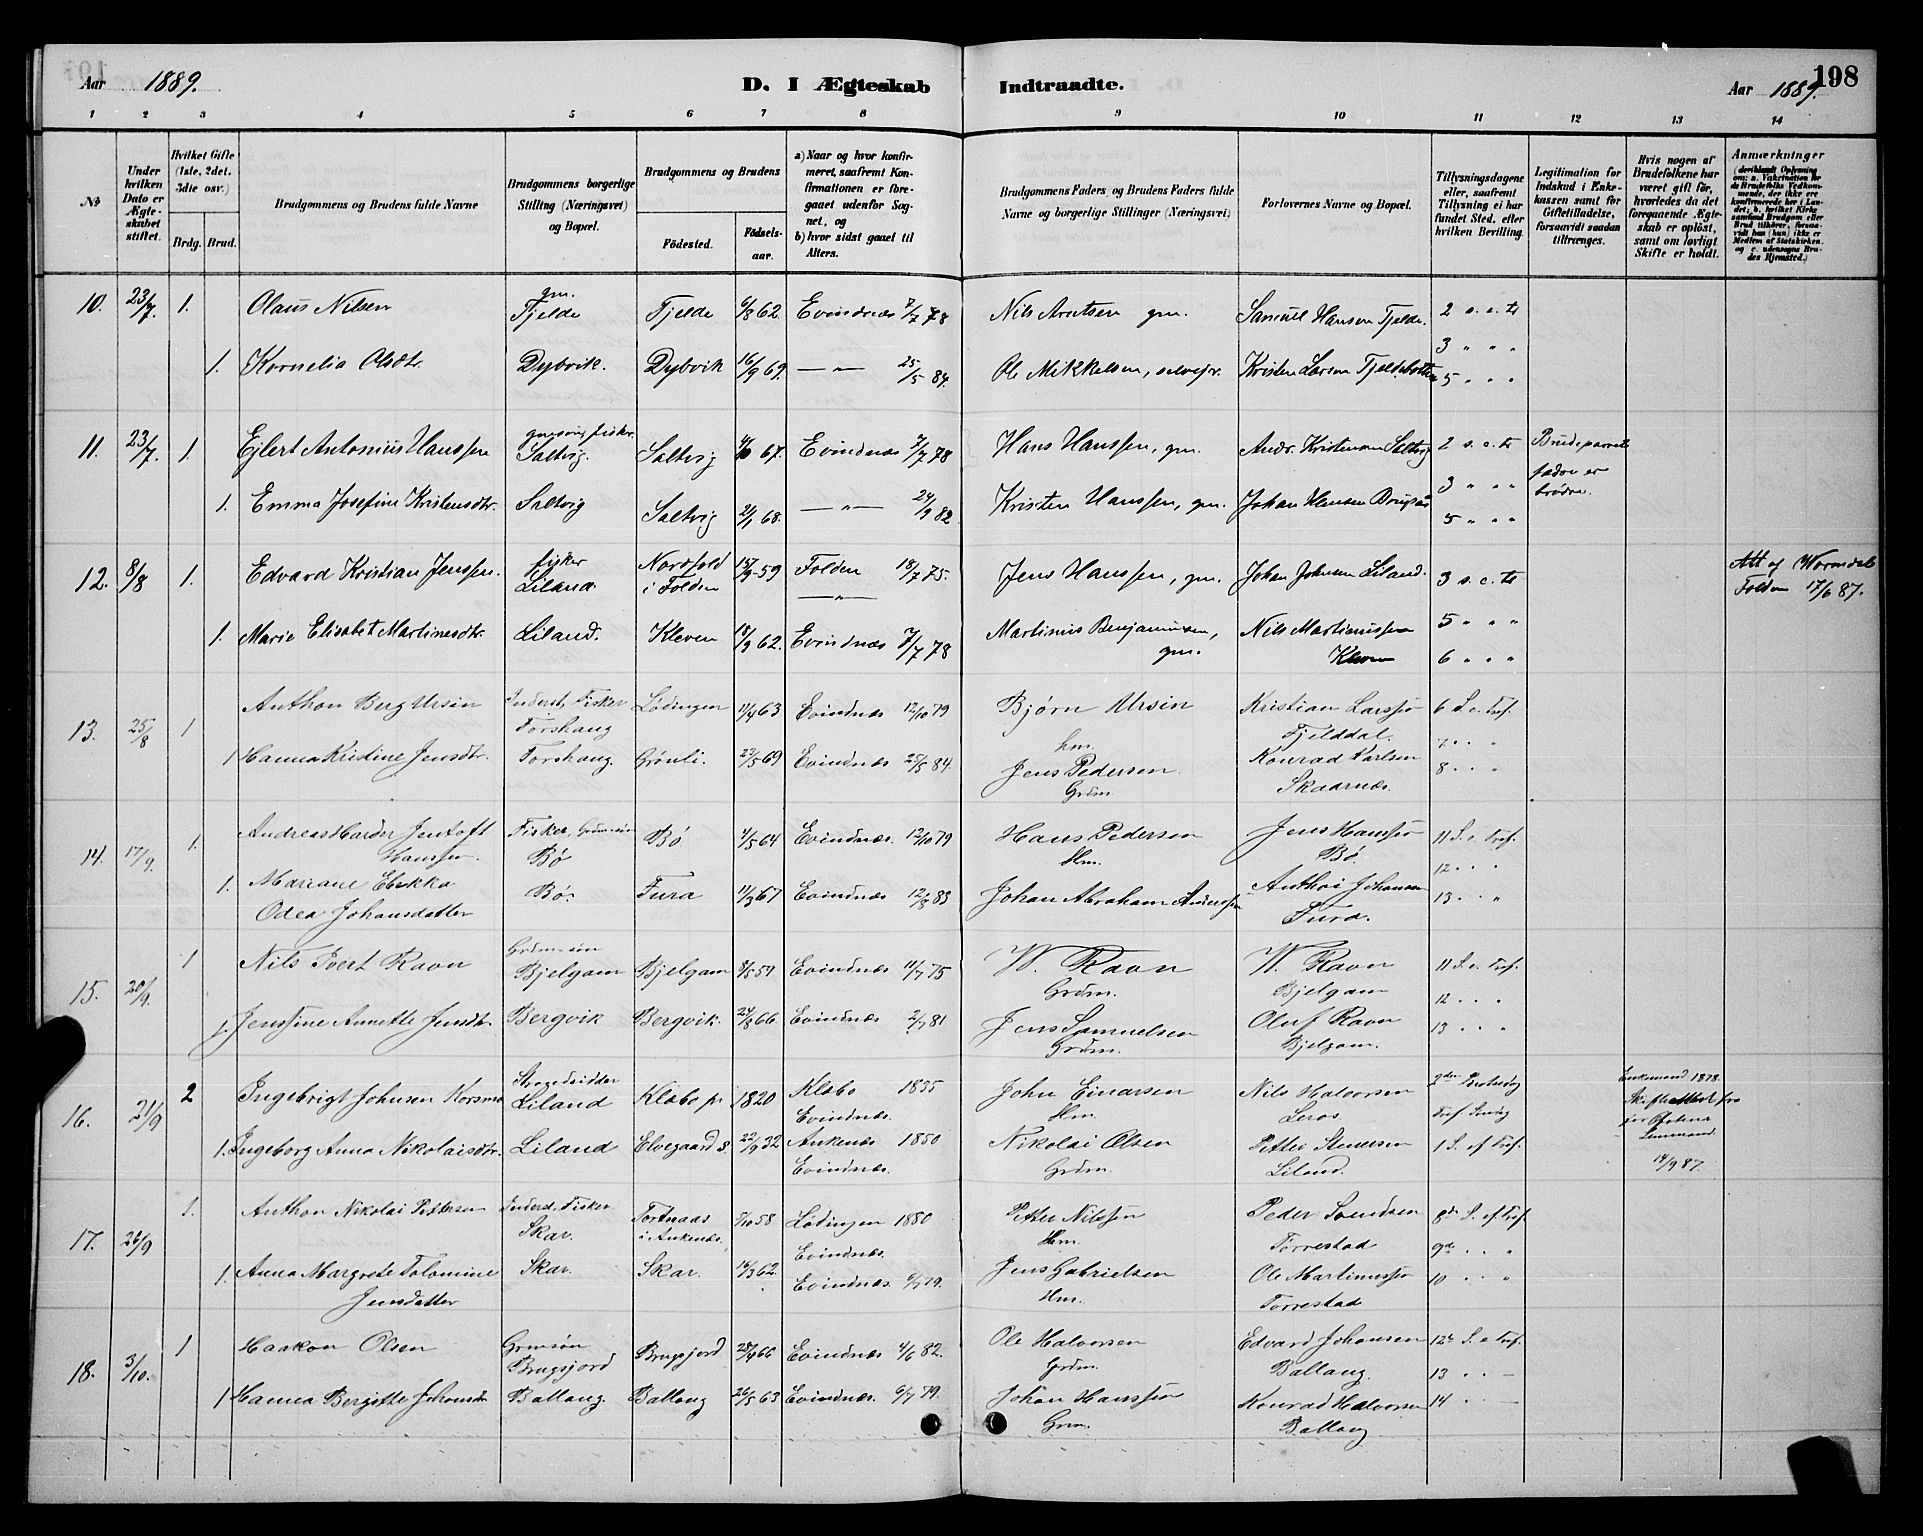 Aar 1889.
D. I Ægteskab Indtraadte.
Aar 1889.
198
1 2 3 4 5 6 7 8 9 10 11 12 13 14
No
Under hvilken Dato er Ægteskabet stiftet.
Hvilket Gifte (1ste, 2det, 3die osv.)
Brdg. Brud.
Brudgommens og Brudens fulde Navne
Brudgommens borgerlige Stilling (Næringsvei) og Bopæl.
Brudgommens og Brudens
Fødested.
Fødselsaar.
a) Naar og hvor konfirmeret, saafremt Konfirmationen er foregaaet udenfor Sognet, og
b) hvor sidst gaaet til Alters.
Brudgommens Faders og Brudens Faders fulde Navne og borgerlige Stillinger (Næringsvei)
Forlovernes Navne og Bopæl.
Tillysningsdagene eller, saafremt Tillysning ei har fundet Sted, efter hvilken Bevilling.
Legitimation for Indskud i Enkekassen samt for Giftetilladelse, forsaavidt saadan tiltrænges.
Hvis nogen af Brudefolkene har været gift før, hvorledes da det foregaaende Ægteskab er opløst, samt om lovligt Skifte er holdt.
Anmærkninger
10. 23/7. 1. Olaus Nilsen gm. Tjelde Tjelde 6/8 62. Evindnæs 7/7 78 Nils Arntsen gm. Samuel Hansen Tjelde. 2 s. e. tr
3 " " "
1. Kornelia Olsdtr. Dybvik. Dybvik 16/9 69. — " — 25/5 84. Ole Mikkelsen, selveier. Kristen Larsen Tjeldebotten 5 " " "
11. 23/7. 1 Ejlert Antonius Hanssen gmsøn, fisker Saltvig. Saltvig 4/10 67. Evindnæs 7/7 78 Hans Hanssen, gm. Andr. Kristensen Saltvig 2 s. e. tr Brudeparrets fædre er brødre.
3 " " "
1. Emma Josefine Kristensdtr. Saltvig Saltvig 21/1 68. — " — 24/9 82. Kristen Hanssen, gm. Johan Hansen 5 " " "
12. 8/8 1. Edvard Kristian Jenssen. fisker Liland Nordfold i Folden 15/9 59 Folden 18/7 75. — " — Jens Hanssen, gm. Johan Johnsen Liland. 3 s. e. tr Att af Folden 17/6 87.
1. Marie Elisabet Martinesdtr. Liland. Kleven 18/9 62. Evindnæs 7/7 78 Martinus Benjaminsen, gm. Nils Martinussen Kleven 5 " " "
6 " " "
13. 25/8 1 Anthon Berg Ursin Inderst, Fisker Forshaug Lødingen 11/4 63 Evindnæs 12/10 79 Bjørn Ursin hm. Kristian Larssen Fjelddal. 6 S. e. Tref.
7 " " "
1 Hanna Kristine Jensdtr. Forshaug. Grønli. 22/5 69 Evindnæs 25/5 84. Jens Pedersen Grdm. Konrad Karlsen Skaarnæs. 8 " " "
14. 17/9. 1. Andreas Harder Jentoft Hanssen. Fisker, Grdmsøn Bø Bø 4/5 64 Evindnæs. 12/10 79 Hans Pedersen Hm. Jens Hanssen Bø 11 S. e. Tref.
12 " " "
1. Mariane Ebekka Odea Johansdatter Bø. Fura 11/3 67 Evindnæs 12/8 83 Johan Abraham Anderssen Anthoi Johansen Fura. 13 " " "
15. 20/9. 1 Nils Ivert Ravn Grdmsøn Bjelgam Bjelgam 8/5 59 Evindnæs 11/7 75 W. Ravn Grdm. W. Ravn Bjelgam 11 S. e. Tref.
12 " " "
1. Jenssine Annette Jensdtr Bergvik Bergvik. 24/8 66 Evindnæs 2/7 81 Jens Samuelsen Grdm. Oluf Ravn Bjelgam. 13 " " "
16. 21/9 2 Ingebrigt Johnsen Korsmo Strandsidder Liland Klæbo pr 1820 Klæbo 1835 Evindnæs. John Einarsen Hm. Nils Halvorsen Leros 2den Enkemand 1878. Skifteattest fra Lensmand 14/9 87.
1. Ingeborg Anna Nikolaisdtr. Liland Elvegaard S. 22/9 32 Ankenæs 1850 Evindnæs. Nikolai Olsen Grdm. Petter Stenersen Liland. 1 S. ef Tref.
17. 26/9 1. Anthon Nikolai Pettersen Inderst, Fisker Skar. i Ankenæs. 5/10 58 Lødingen 1880 Evindnæs. Petter Nilssen Hm. Peder Svendsen Torrestad 8de S. ef Tref.
9de " " "
1. Anna Margrete Tolomine Jensdatter Skar. Skar. 16/3 62. Evindnæs. 6/7 79. Jens Gabrielsen Hm. Ole Martinussen Torrestad 10 " " "
18. 3/10. 1 Haakon Olsen Grdmsøn 28/4 66 Evindnæs 4/6 82. Ole Halvorsen Grdm. Edvard Johansen Ballang. 12te S. e Tref.
13 " " —
1 Hanna Bergitte Johansdtr Ballang. Ballang 26/5 63 Evindnæs. 6/7 79. Johan Hanssen Grm. Konrad Halvorsen Ballang 14 " —